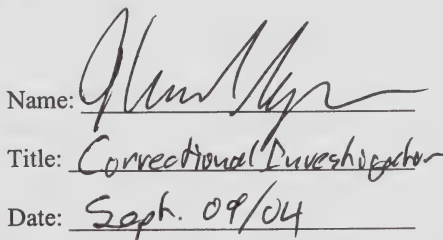 Name:
Title: Correctional Investigator
Date: Sept. 09/04